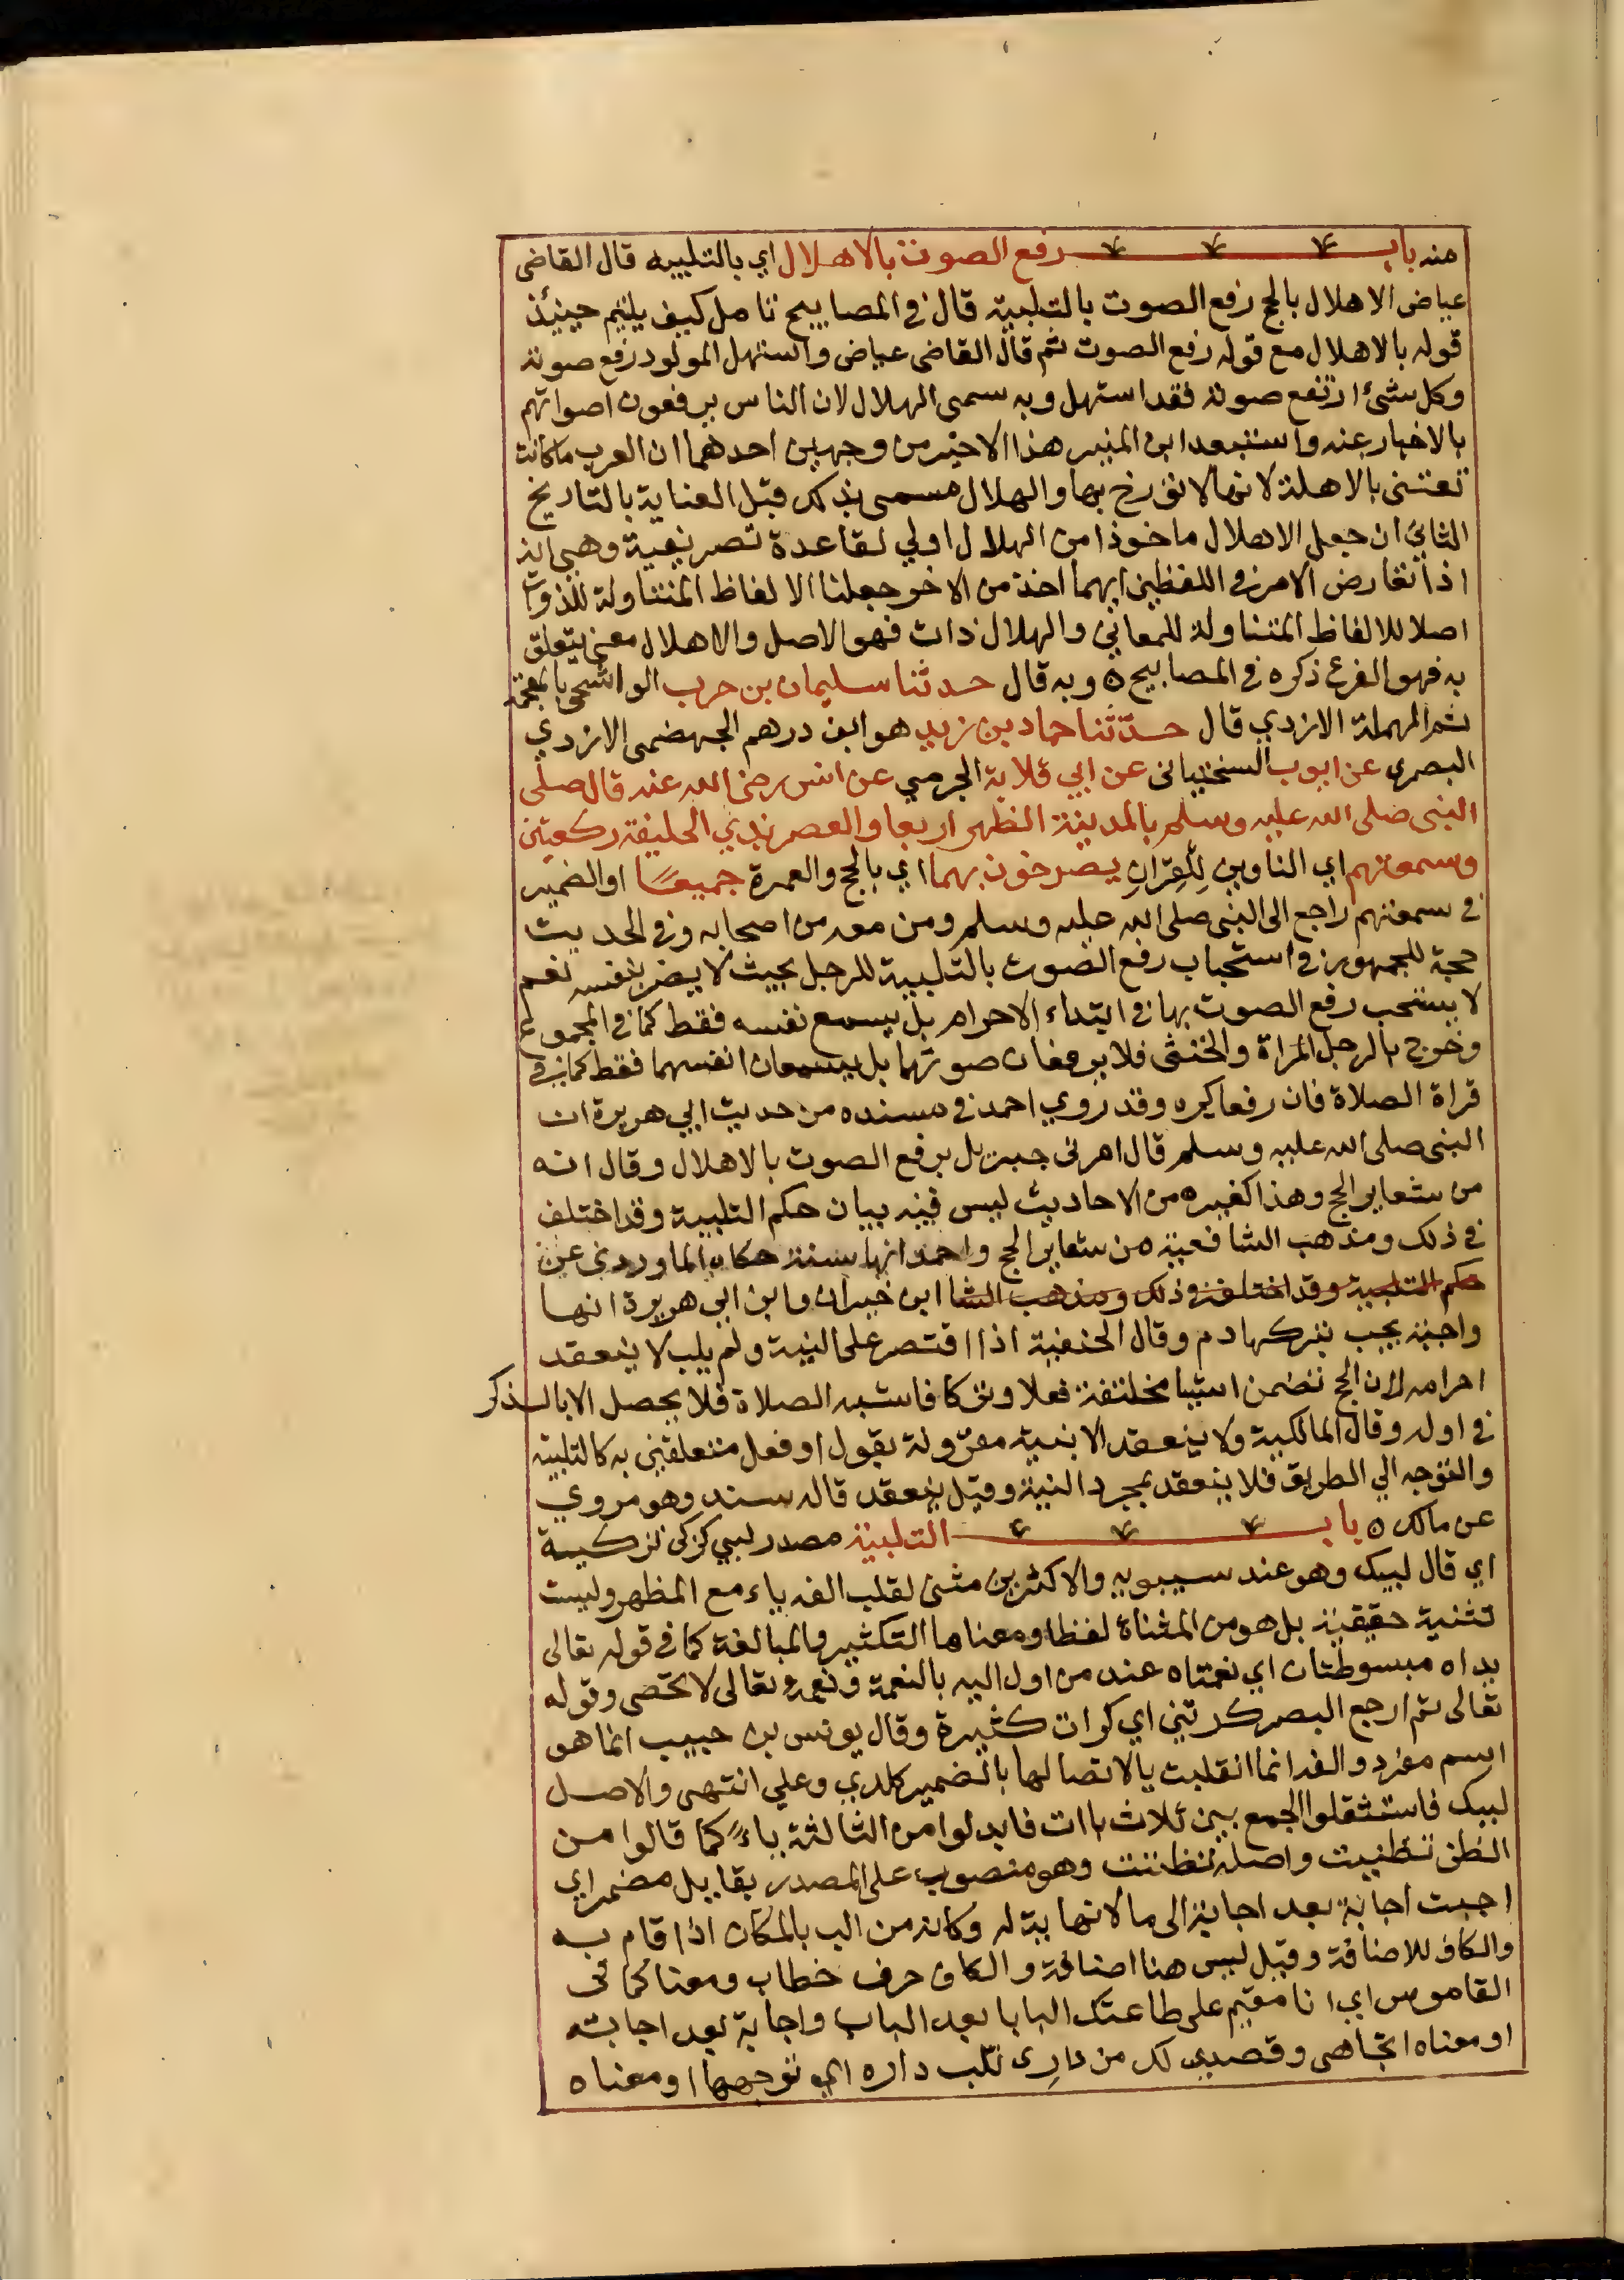 منه باب رفع الصوت بالاهلال اي بالتلبيه قال القاضى
عياض الاهلال بالحج رفع الصوت بالتلبية قال في المصابيح تامل كيف يلتيم حينئذ
قوله بالاهلال مع قوله رفع الصوت ثم قال القاضى عياض واستهل المولود رفع صوته
وكل شئ ارتفع صوته فقد استهل وبه سمى الهلال لان الناس يرفعون اصواتهم
بالاخبار عنه واستبعد ابن المنير هذا الاخير من وجهين احدهما ان العرب ما كانت
تعتنى بالاهلة لانها لا تؤرخ بها والهلال مسمى بذلك قبل العناية بالتاريخ
الثاني ان جعل الاهلال ماخوذا من الهلال اولي لقاعدة تصريفية وهي انه
اذا تعارض الامر في اللفظين ايهما اخذ من الاخر جعلنا الالفاظ المتناولة للذوات
اصلا للالفاظ المتناولة للمعاني والهلال ذات فهو الاصل والاهلال معنى يتعلق
به فهو الفرع ذكره في المصابيح ه وبه قال حدثنا سليمان بن حرب الواشحى بالمعجمة
ثم المهملة الازدي قال حدّثنا حماد بن زيد هو ابن درهم الجهضمى الازدي
البصري عن ايوب السختيانى عن ابي قلابة الجرمي عن انس رضى الله عنه قال صلى
النبى صلى الله عليه وسلم بالمدينة الظهر اربعا والعصر بذي الحليفة ركعتين
وسمعتهم اي الناوين لِلْقِرَانِ يصرخون بهما اي بالحج والعمرة جميعًا او الضمير
في سمعتهم راجع الى النبى صلى الله عليه وسلم ومن معه من اصحابه وفي الحديث
حجة للجمهور في استحباب رفع الصوت بالتلبية للرجل بحيث لا يضر بنفسه نعم
لا يستحب رفع الصوت بها في ابتداء الاحرام بل يسمع نفسه فقط كما في المجموع
وخرج بالرجل المراة والخنثى فلا يرفعان صوتهما بل يسمعان انفسهما فقط كما في
قراة الصلاة فان رفعا كره وقد روي احمد في مسنده من حديث ابي هريرة ان
النبى صلى الله عليه وسلم قال امرنى جبريل برفع الصوت بالاهلال وقال انه
من شعاير الحج وهذا كغيره من الاحاديث ليس فيه بيان حكم التلبية وقد اختلف
في ذلك ومذهب الشافعية من شعاير الحج واحمد انها سنة حكاه الماوردي عن
حكم التلبية وقد اختلف في ذلك ومذهب الشا ابن خيران وابن ابي هريرة انها
واجبة يجب بتركها دم وقال الحنفية اذا اقتصر على النية ولم يلب لا ينعقد
احرامه لان الحج تضمن اشيا مختلفة فعلا وتركا فاشبه الصلاة فلا يحصل الا بالذكر
في اوله وقال المالكية ولا ينعقد الا بنية مقرونة بقول او فعل متعلقين به كالتلبية
والتوجه الي الطريق فلا ينعقد بمجرد النية وقيل ينعقد قاله سند وهو مروي
عن مالك ه باب التلبية مصدر لبي كزكى تزكيية
اي قال لبيك وهو عند سيبويه والاكثرين مثنى لقلب الفه ياء مع المظهر وليست
تثنية حقيقية بل هو من المثناة لفظا ومعناها التكثير والمبالغة كما في قوله تعالى
يداه مبسوطتان اي نعمتاه عند من اول اليه بالنعمة ونعمه تعالى لا تحصى وقوله
تعالى ثم ارجع البصر كرتين اي كرات كثيرة وقال يونس بن حبيب انما هو
اسم مفرد والفه انما انقلبت يا لاتصالها بالضمير كلدي وعلي انتهى والاصل
لببك فاستثقلوا الجمع بين ثلاث باات فابدلوا من الثالثة ياءً كما قالوا من
الظن تظنيت واصله تظننت وهو منصوب على المصدر بقاييل مضمر اي
اجبت اجابة بعد اجابة الى ما لا نهاية له وكانه من الب بالمكان اذا قام به
والكاف للاضافة وقيل ليس هنا اضافة والكاف حرف خطاب ومعناه كما في
القاموس اي انا مقيم على طاعتك البابا بعد الباب واجابة بعد اجابته
او معناه اتجاهى وقصدى لك من دارِى تلب داره اي توجهها او معناه